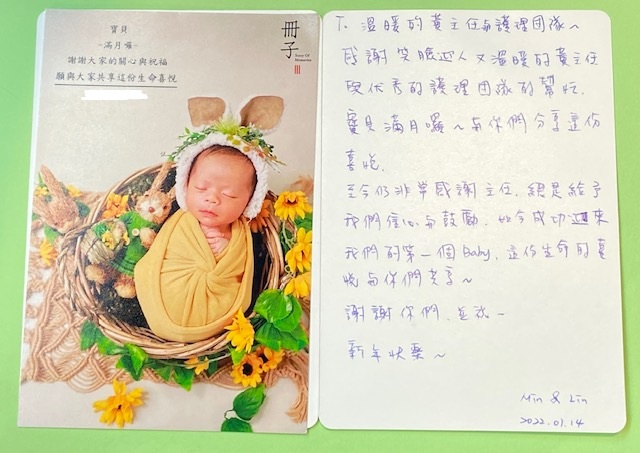 寶貝
~滿月囉~
謝謝大家的關心與祝福
願與大家共享這份生命喜悅
冊子
Story Of
Memories
III
溫暖的黃主任與護理團隊~
感謝笑臉迎人又溫暖的黃主任
與優秀的護理團隊的幫忙.
寶貝滿月囉~與你們分享這份
喜悅.
至今仍非常感謝主任,總是給予
我們信心與鼓勵.如今成功迎來
我們的第一個Baby,這份生命的喜
悅與你們共享~
謝謝你們,並祝~
新年快樂~
Min & Lin
2022.01.14